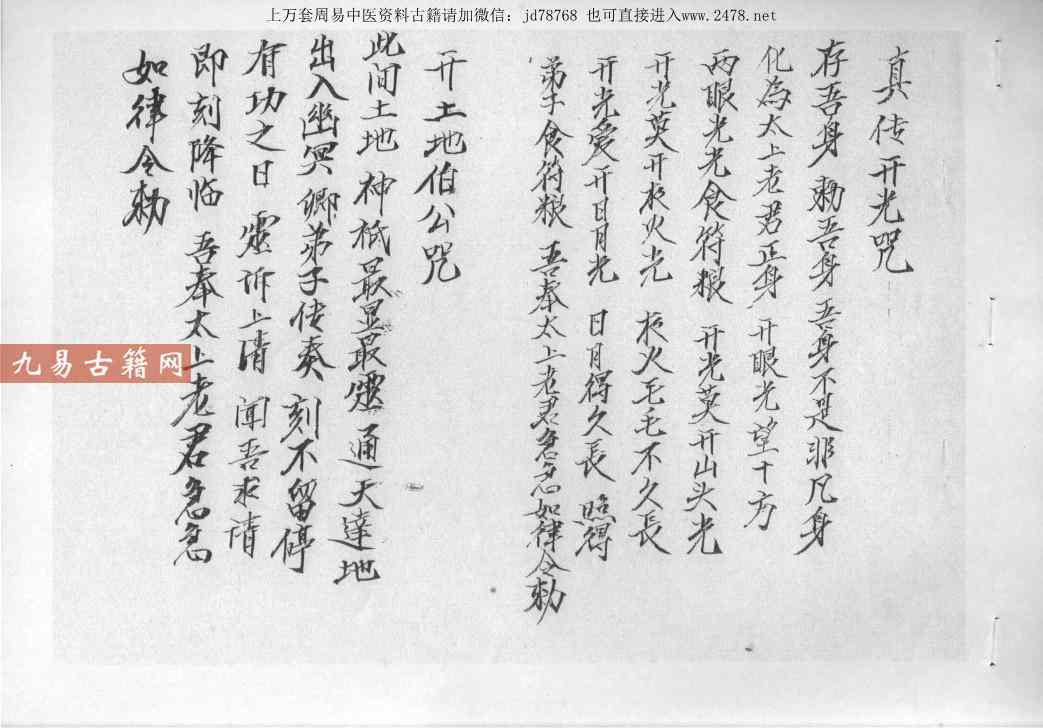 上万套周易中医资料古籍请加微信：jd78768 也可直接进入www.2478.net
真传开光咒
存吾身 勅吾身 吾身不是非凡身
化為太上老君正身 开眼光望十方
两眼光光食符粮 开光莫开山头光
开光莫开夜火光 夜火毛毛不久長
开光爱开日月光 日月得久長 照得
弟子食符粮 吾奉太上老君急急如律令勅
开土地伯公咒
此间土地 神祇最显最灵 通天達地
出入幽冥 鄉弟子传奏 刻不留停
有功之日 灵诉上清 闻吾求请
即刻降临 吾奉太上老君急急
如律令勅
九易古籍网